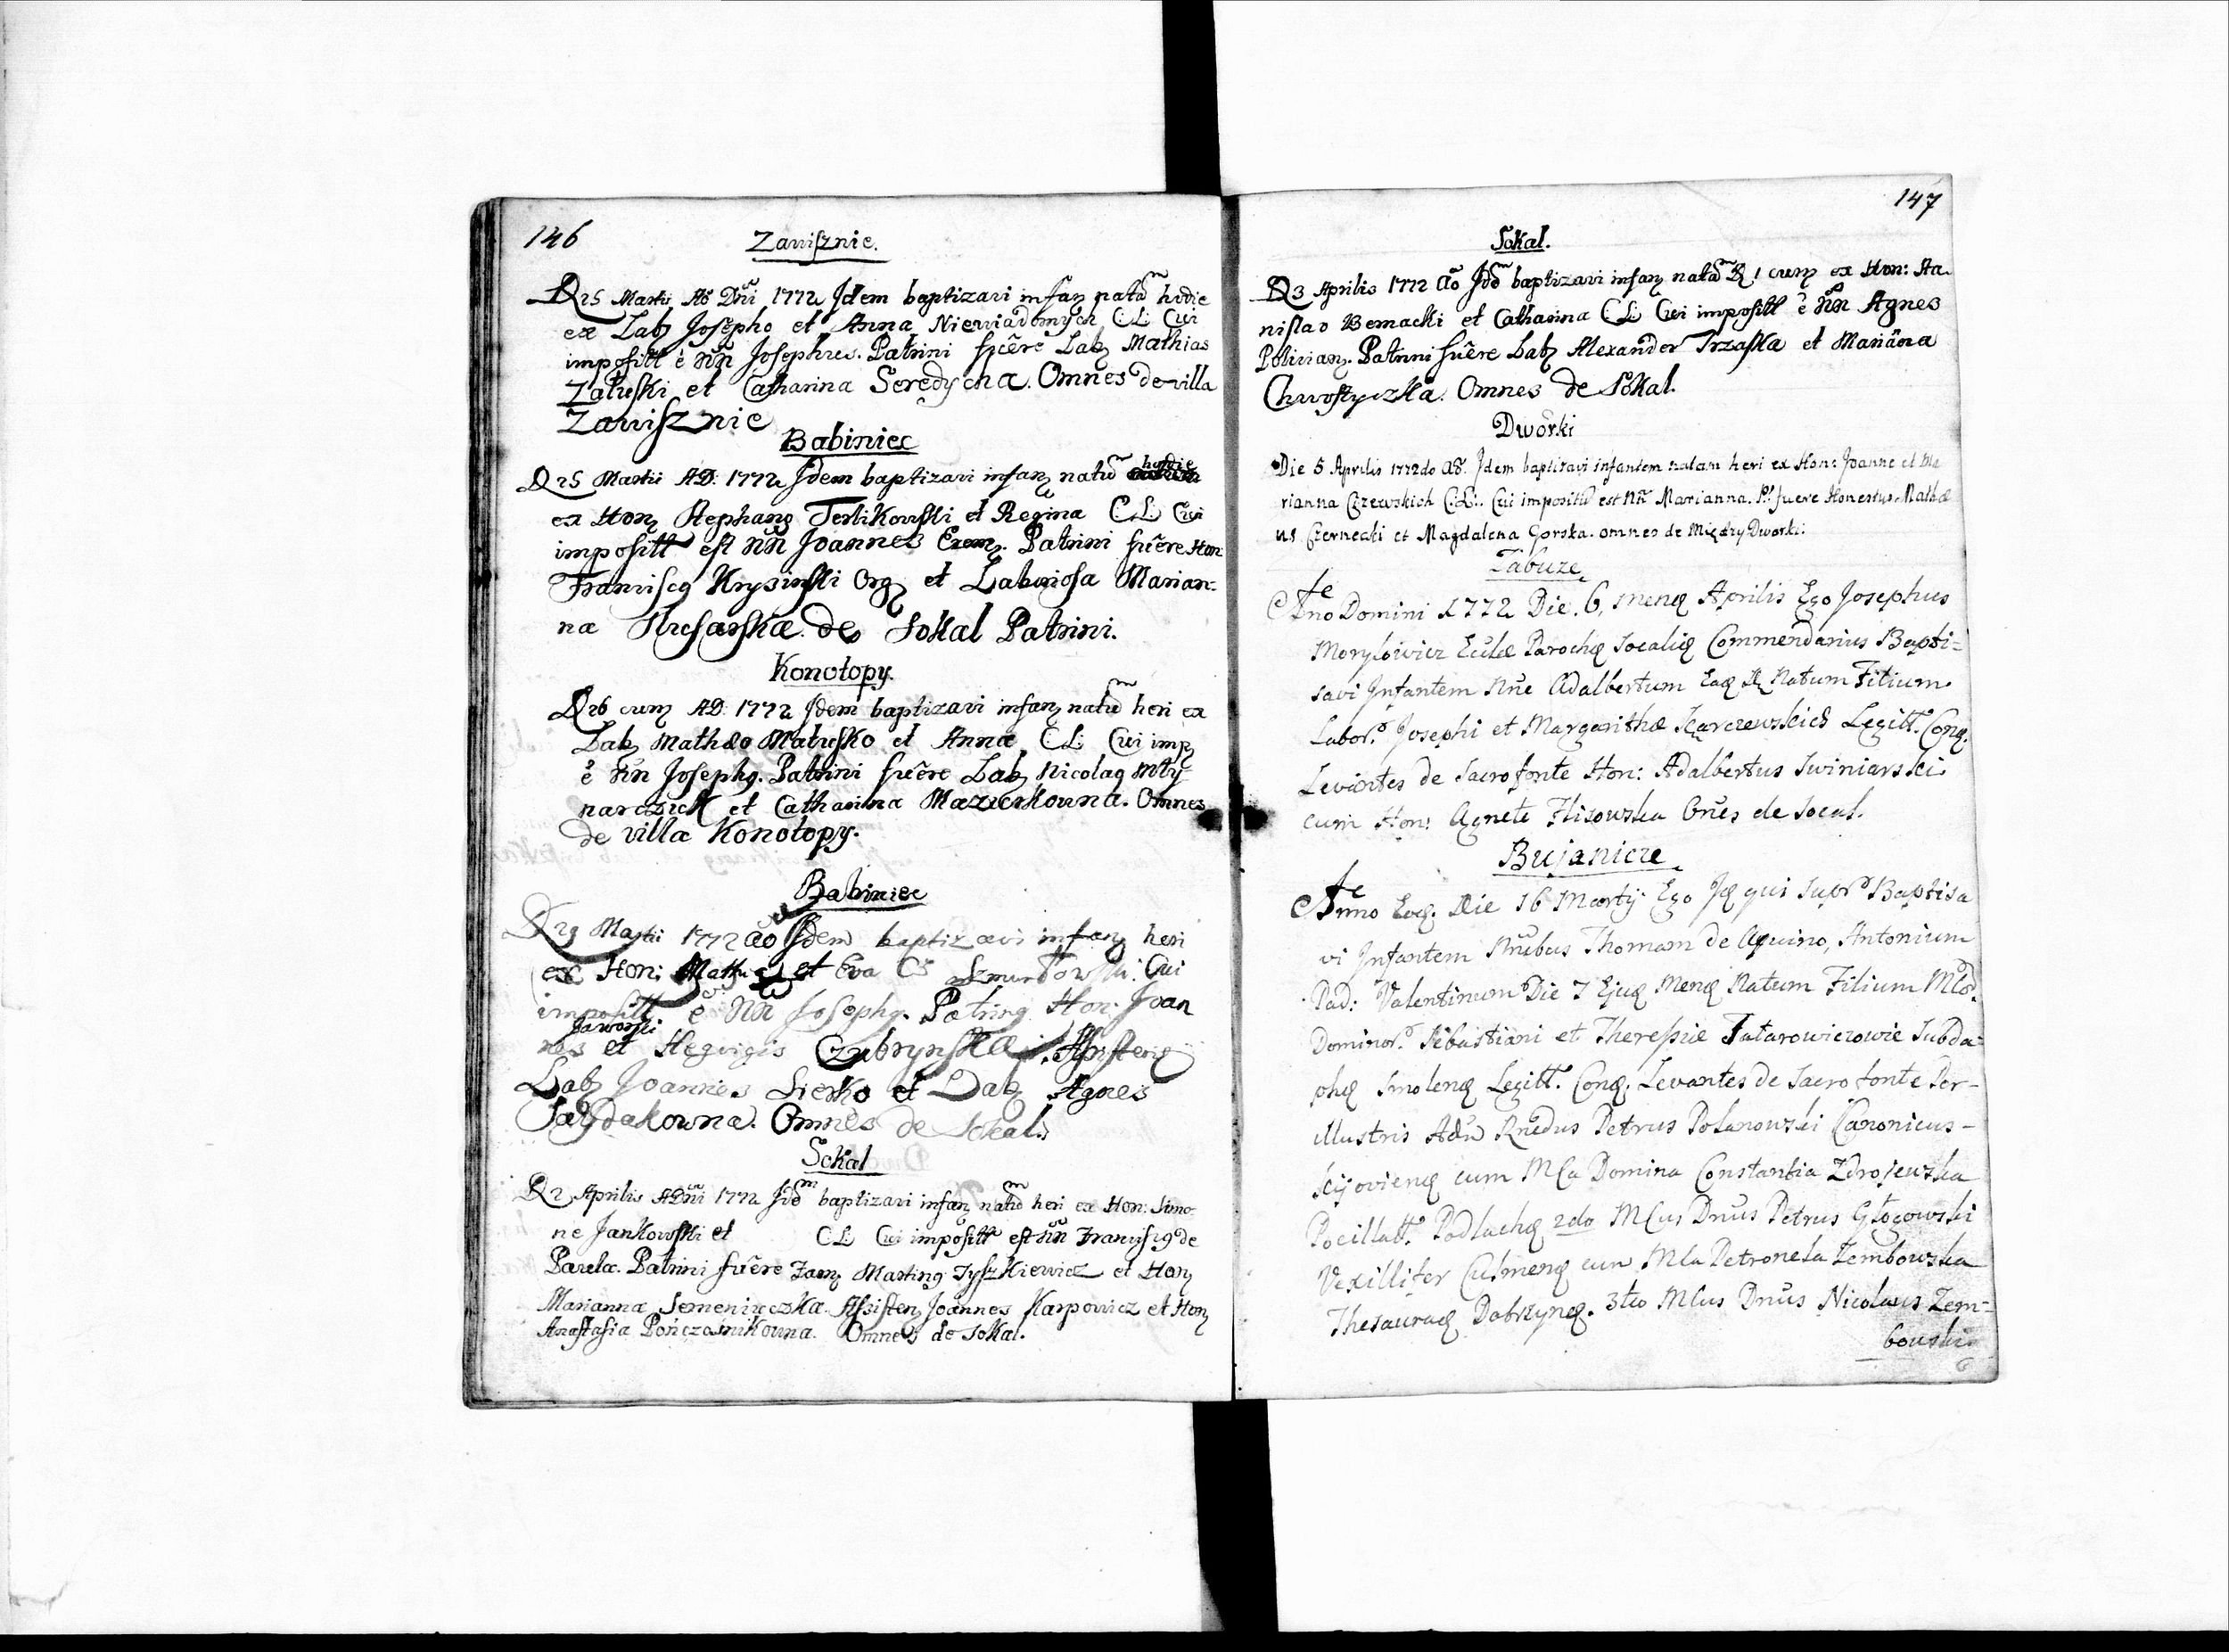 146
Zawisznie.
D 25 Martii Aõ Dñi 1772 Jdem baptizavi infan natũ hodie
ex Lab Josepho et Anna Niewiadomych C: L: Cui
impositt ẽ nñ Josephus. Patrini fuêre Lab Mathias
Załuski et Catharina Seredycha. Omnes de villa
Zawisznie
Babiniec
D 25 Martii AD: 1772 Jdem baptizavi infan natũ hodie
ex Hon Stephano Terlikowski et Regina C: L: Cui
impositt est nñ Joannes Erem. Patrini fuêre Hon
Francisc Krysinski Org et Laboriosa Marian-
na de Sokal Patrini.
Konotopy.
D 26 eum AD: 1772 Jdem baptizavi infan natũ heri ex
Lab Mathæo Matusko et Anna C L: Cui imp
ẽ nñ Joseph. Patrini fuêre Lab Nicola Mły-
narczuk et Catharina Mazurkowna. Omnes
de villa Konotopy.
Babiniec
D 29 Martii 1772 Aõ Jdem baptizavi infan heri
ex Hon: et Eva Cui
impositt ẽ Nñ Joseph. Patrin Hon: Joan
Jaworski
nes et Hegvigis Assisten
Lab Joannes Sierko et Lab Agnes
Omnes de Sokal.
Sokal
D 2 Aprilis ADñi 1772 Jdẽ baptizavi infan natũ heri ex Hon: Simo-
ne Jankowski et C: L: Cui impositt est nñ Francisc de
Paula. Patrini fuêre Fam Martin Tyszkiewicz et Hon
Marianna Semeniuczka. Assisten Joannes Karpowicz et Hon
Anastasia Pończosznikowna. Omnes de Sokal.
147
Sokal.
D 3 Aprilis 1772 aõ Jdẽ baptizavi infan natã D 1 eum ex Hon: Sta-
nislao Bernacki et Catharina C: L: Cui impositt ẽ nñ Agnes
Politian. Patrini fuêre Lab Alexander Trzaska et Mariãna
Chwostyczka. Omnes de Sokal.
Dworki
Die 5 Aprilis 1772do aõ. Jdem baptizavi infantem natam heri ex Hon: Joanne et Ma
rianna Czzewskich C: L:. Cui impositũ est Nñ Marianna. P: fuere Honestus Mathæ
us Czernecki et Magdalena Gorska. omnes de Między Dworki.
Zabuze
Anno Domini 1772 Die 6, Mens Aprilis Ego Josephus
Morylowicz Ecclæ Paroch Socali Commendarius Bapti-
savi Jnfantem Nñe Adalbertum Natum Filium
Labor. Josephi et Margarithæ Karczewskich Legitt. Con.
Levantes de Sacro fonte Hon: Adalbertus Swiniarski
cum Hon: Agnete Flisowska Oñes de Socal.
Bujanicze
Anno Eod. Die 16 Martij Ego Jd qui Supr Baptisa
vi Jnfantem Nñibus Thomam de Aquino, Antonium
Pad: Valentinum Die 7 Ejus Mens Natum Filium Mcō.
Dominor. Sebastiani et Theressiæ Tatarowiczowie Subda-
ph Smolens Legitt. Con. Levantes de Sacro fonte Per-
illustris Adm Rñdus Petrus Polanowski Canonicus
Kijoviens cum Mca Domina Constantia Zdrojewska
Pocillatt. Podlach 2do Mcus Dñus Petrus Głogowski
Vexillifer Culmens cum Mca Petronela Zembowska
Thesaurac Dobrzyns. 3tio Mcus Dñus Nicolaus Zem-
bowski